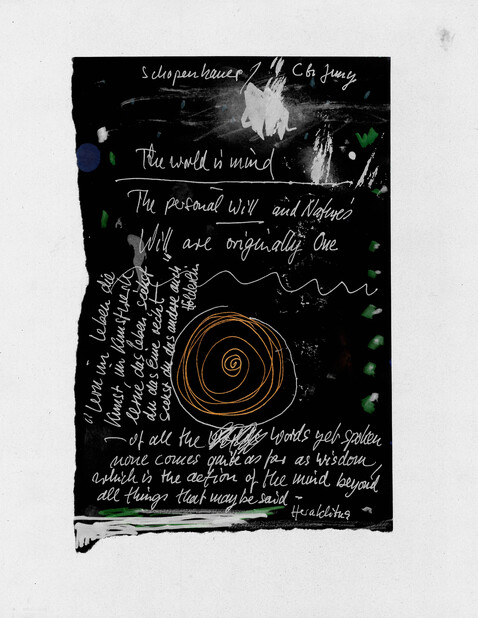 Schopenhauer / CG Jung
The world is mind
The personal Will and Nature's
Will are originally One
"Lern im Leben die
Kunst, im Kunstwerk
lerne das Leben siehst
du das Eine recht
siehst du das andere auch"
of all the words yet spoken
none comes quite as far as wisdom,
which is the action of the mind beyond
all things that may be said –
Heraklitus